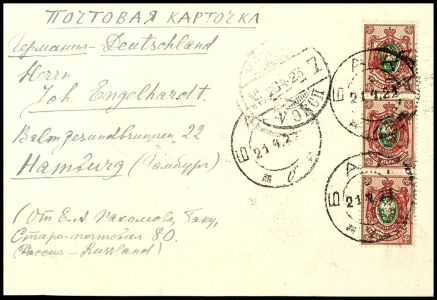 ПОЧТОВАЯ КАРТОЧКА
Германия – Deutschland
Herrn
Joh. Engelhardt.
Beim gesundbrunnen 22
Hamburg (Гамбург)
(От Е.А. Баку,
Старо-почтовая 80.
Россия – Russland)
21.4.23
21.4.23
21.4.23